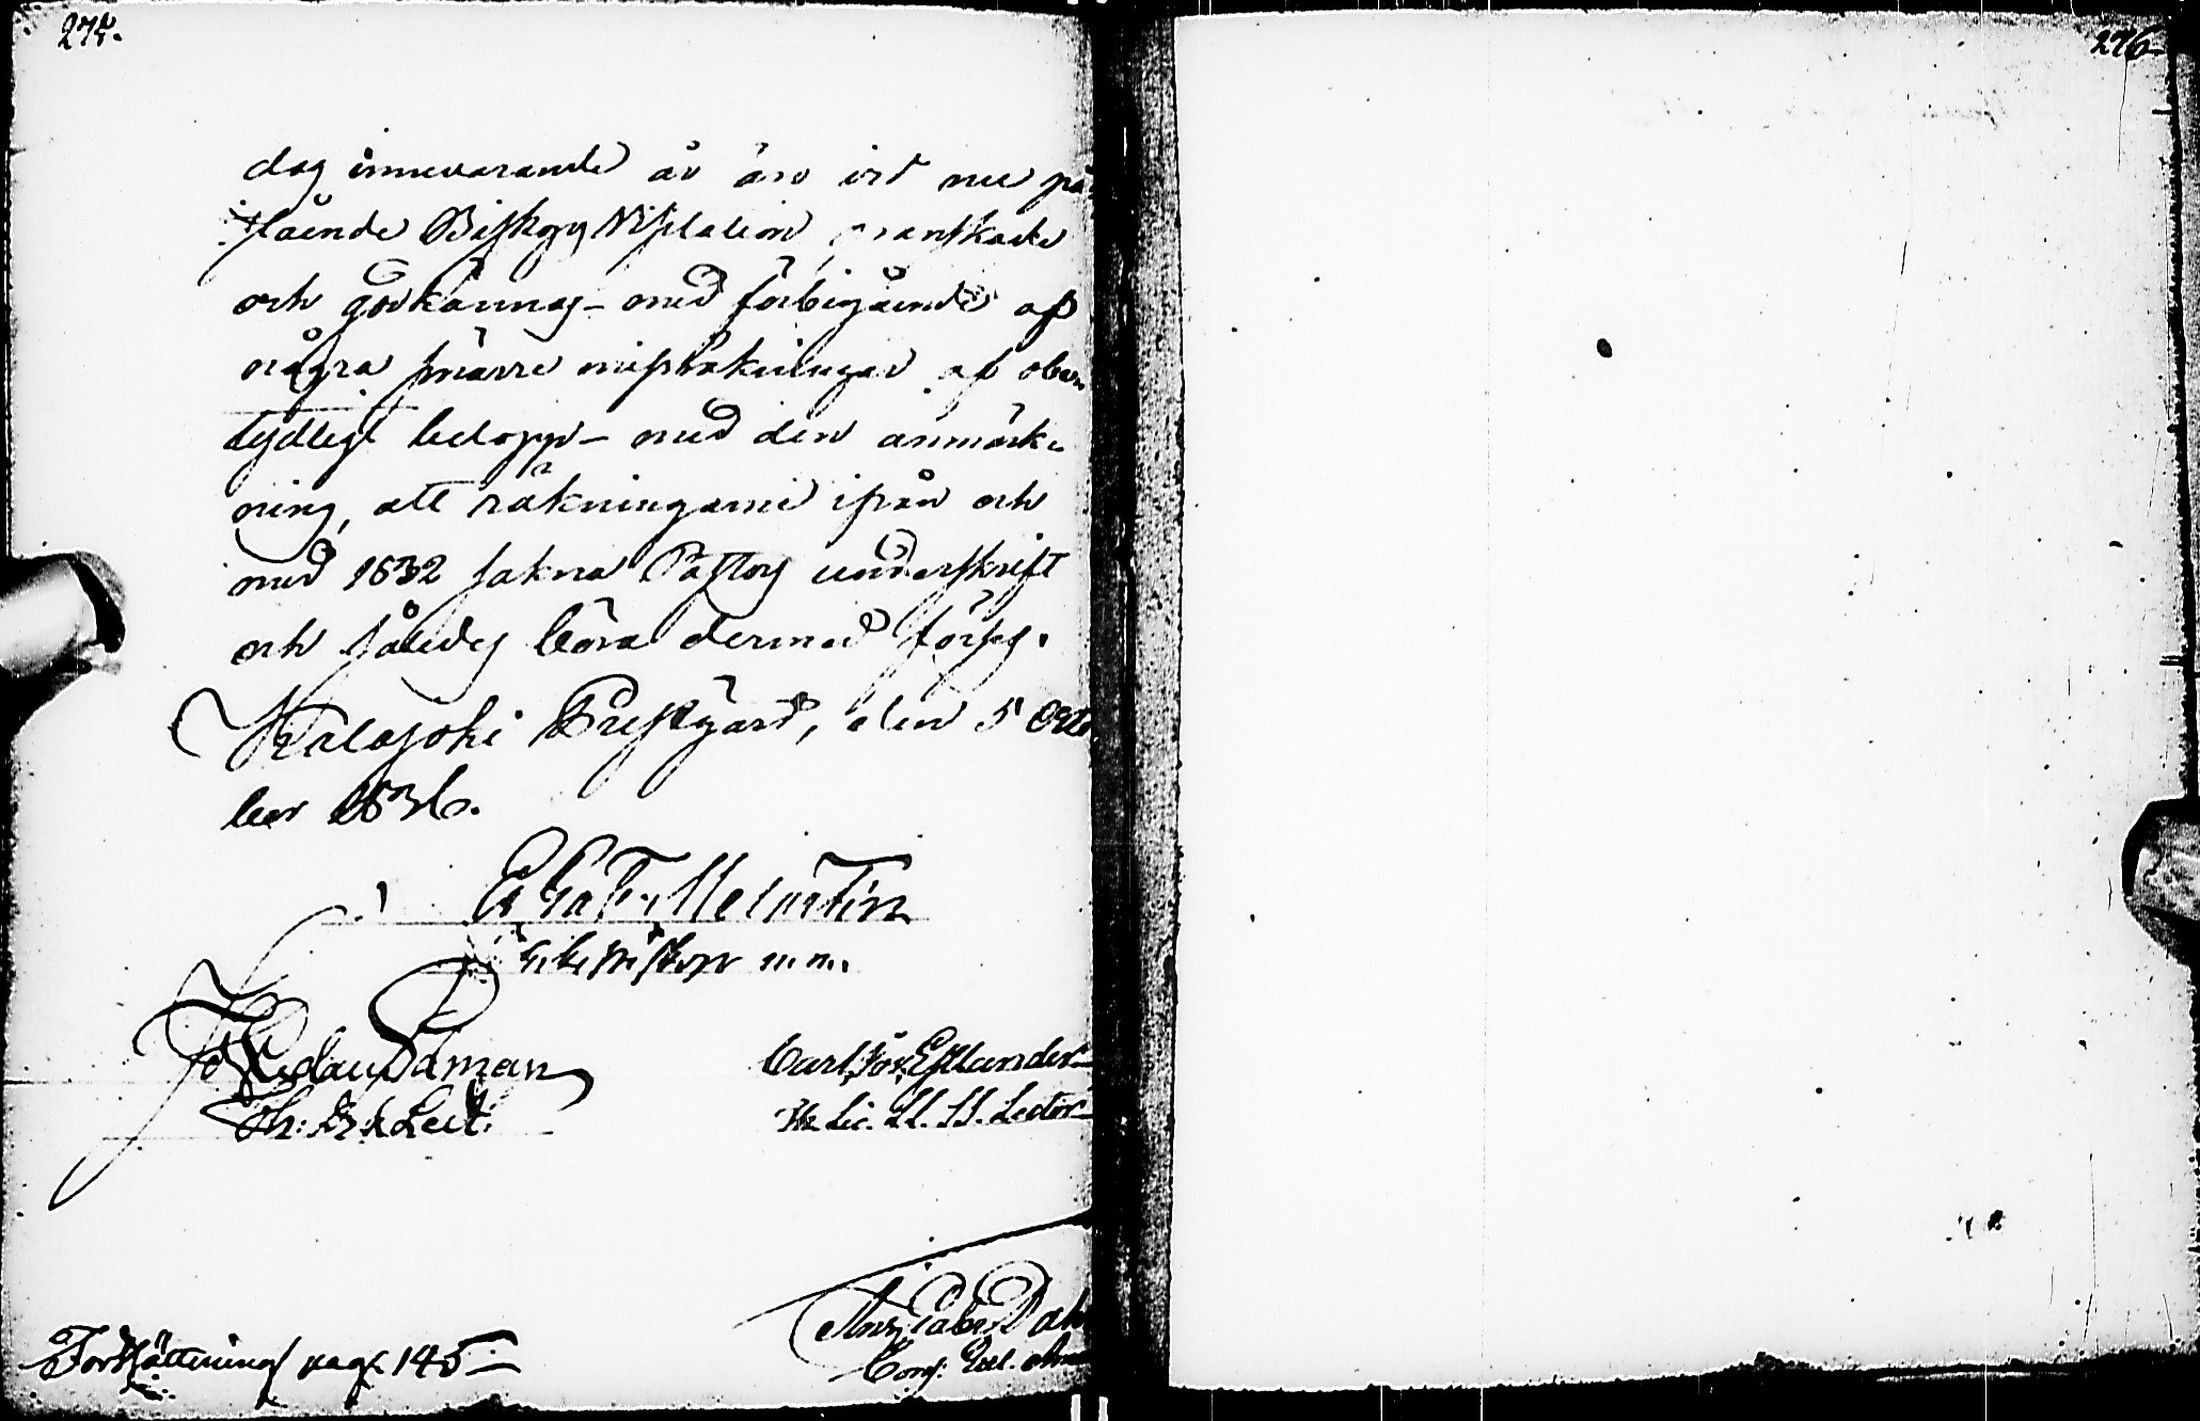 275.
276.
dag innevarande år äro vid nu på
stående Biskops Visitation granskade
och godkännas – med förbigående af
några smärre missräkningar af obe
tydligt belopp – med den anmärk-
ning, att räkningarne ifrån och
med 1832 sakna Pastors underskrift
och således böra dermed förses.
Kalajoki Prestgård, den 5 Octo
ber 1836.
E. G. Melartin
Erke Biskop m.m.
Edman
Lect.
Carl Jos. Estlander
Th. Lic. LL. SS. Lector
Gabr. Dah
Cons. Eccl.
Fortsättning pag. 145 –